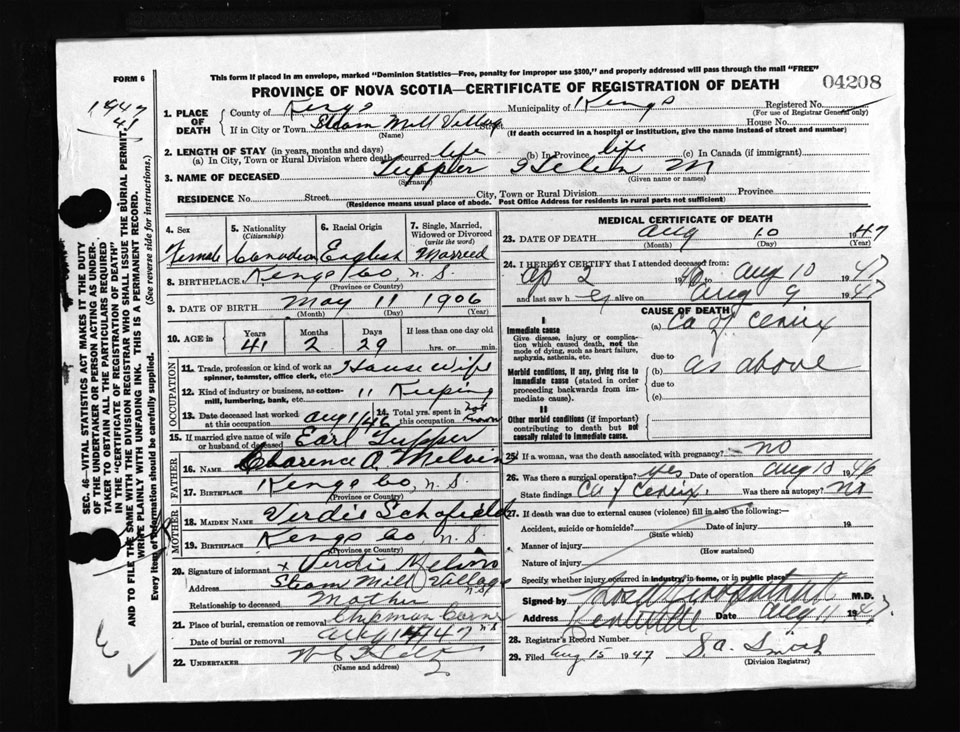 FORM 6
This form if placed in an envelope, marked "Dominion Statistics—Free, penalty for improper use $300," and properly addressed will pass through the mail "FREE"
PROVINCE OF NOVA SCOTIA—CERTIFICATE OF REGISTRATION OF DEATH
04208
1947
41
1. PLACE OF DEATH
County of Kings Municipality of Kings Registered No.
(For use of Registrar General only)
If in City or Town Steam Mill Village Street House No.
(Name) (If death occurred in a hospital or institution, give the name instead of street and number)
2. LENGTH OF STAY (in years, months and days)
(a) In City, Town or Rural Division where death occurred life (b) In Province life (c) In Canada (if immigrant)
3. NAME OF DECEASED Tupper Helen M
(Surname) (Given name or names)
RESIDENCE No. Street City, Town or Rural Division Province
(Residence means usual place of abode. Post Office Address for residents in rural parts not sufficient)
4. Sex 5. Nationality (Citizenship) 6. Racial Origin 7. Single, Married, Widowed or Divorced (write the word)
Female Canadian English Married
8. BIRTHPLACE Kings Co, N.S.
(Province or Country)
9. DATE OF BIRTH May 11 1906
(Month) (Day) (Year)
10. AGE in Years Months Days If less than one day old
41 2 29 hrs. or min.
OCCUPATION
11. Trade, profession or kind of work as spinner, teamster, office clerk, etc. House Wife
12. Kind of industry or business, as cotton-mill, lumbering, bank, etc. " Keeping
13. Date deceased last worked at this occupation Aug 1/46 14. Total yrs. spent in this occupation not known
15. If married give name of wife or husband of deceased Earl Tupper
FATHER
16. Name Clarence A. Melvin
17. Birthplace Kings Co, N.S.
(Province or Country)
MOTHER
18. Maiden Name Virdie Schofield
19. Birthplace Kings Co, N.S.
(Province or Country)
20. Signature of informant x Virdie Melvin
Address Steam Mill Village N.S.
Relationship to deceased Mother
21. Place of burial, cremation or removal Chipman Corner N.S.
Date of burial or removal Aug 14/47
22. UNDERTAKER
(Name and address)
MEDICAL CERTIFICATE OF DEATH
23. DATE OF DEATH Aug 10 1947
(Month) (Day) (Year)
24. I HEREBY CERTIFY that I attended deceased from:
Ap 2 to Aug 10 1947
and last saw h er alive on Aug 9 1947
CAUSE OF DEATH
I
Immediate cause
Give disease, injury or complication which caused death, not the mode of dying, such as heart failure, asphyxia, asthenia, etc.
(a) Ca of Cervix
due to
Morbid conditions, if any, giving rise to immediate cause (stated in order proceeding backwards from immediate cause).
(b) as above
due to
(c)
II
Other morbid conditions (if important) contributing to death but not causally related to immediate cause.
25. If a woman, was the death associated with pregnancy? no
26. Was there a surgical operation? yes Date of operation Aug 10 1946
State findings Ca of Cervix. Was there an autopsy? no
27. If death was due to external causes (violence) fill in also the following:—
Accident, suicide or homicide? Date of injury 19
(State which)
Manner of injury
(How sustained)
Nature of injury
Specify whether injury occurred in industry, in home, or in public place
Signed by M.D.
Address Kentville Date Aug 11 1947
28. Registrar's Record Number
29. Filed Aug 15 1947 S.A. Smith
(Division Registrar)
SEC. 46—VITAL STATISTICS ACT MAKES IT THE DUTY
OF THE UNDERTAKER OR PERSON ACTING AS UNDER-
TAKER TO OBTAIN ALL THE PARTICULARS REQUIRED
IN THE "CERTIFICATE OF REGISTRATION OF DEATH"
AND TO FILE THE SAME WITH THE DIVISION REGISTRAR WHO SHALL ISSUE THE BURIAL PERMIT.
WRITE PLAINLY WITH UNFADING INK. THIS IS A PERMANENT RECORD.
Every item of information should be carefully supplied. (See reverse side for instructions.)